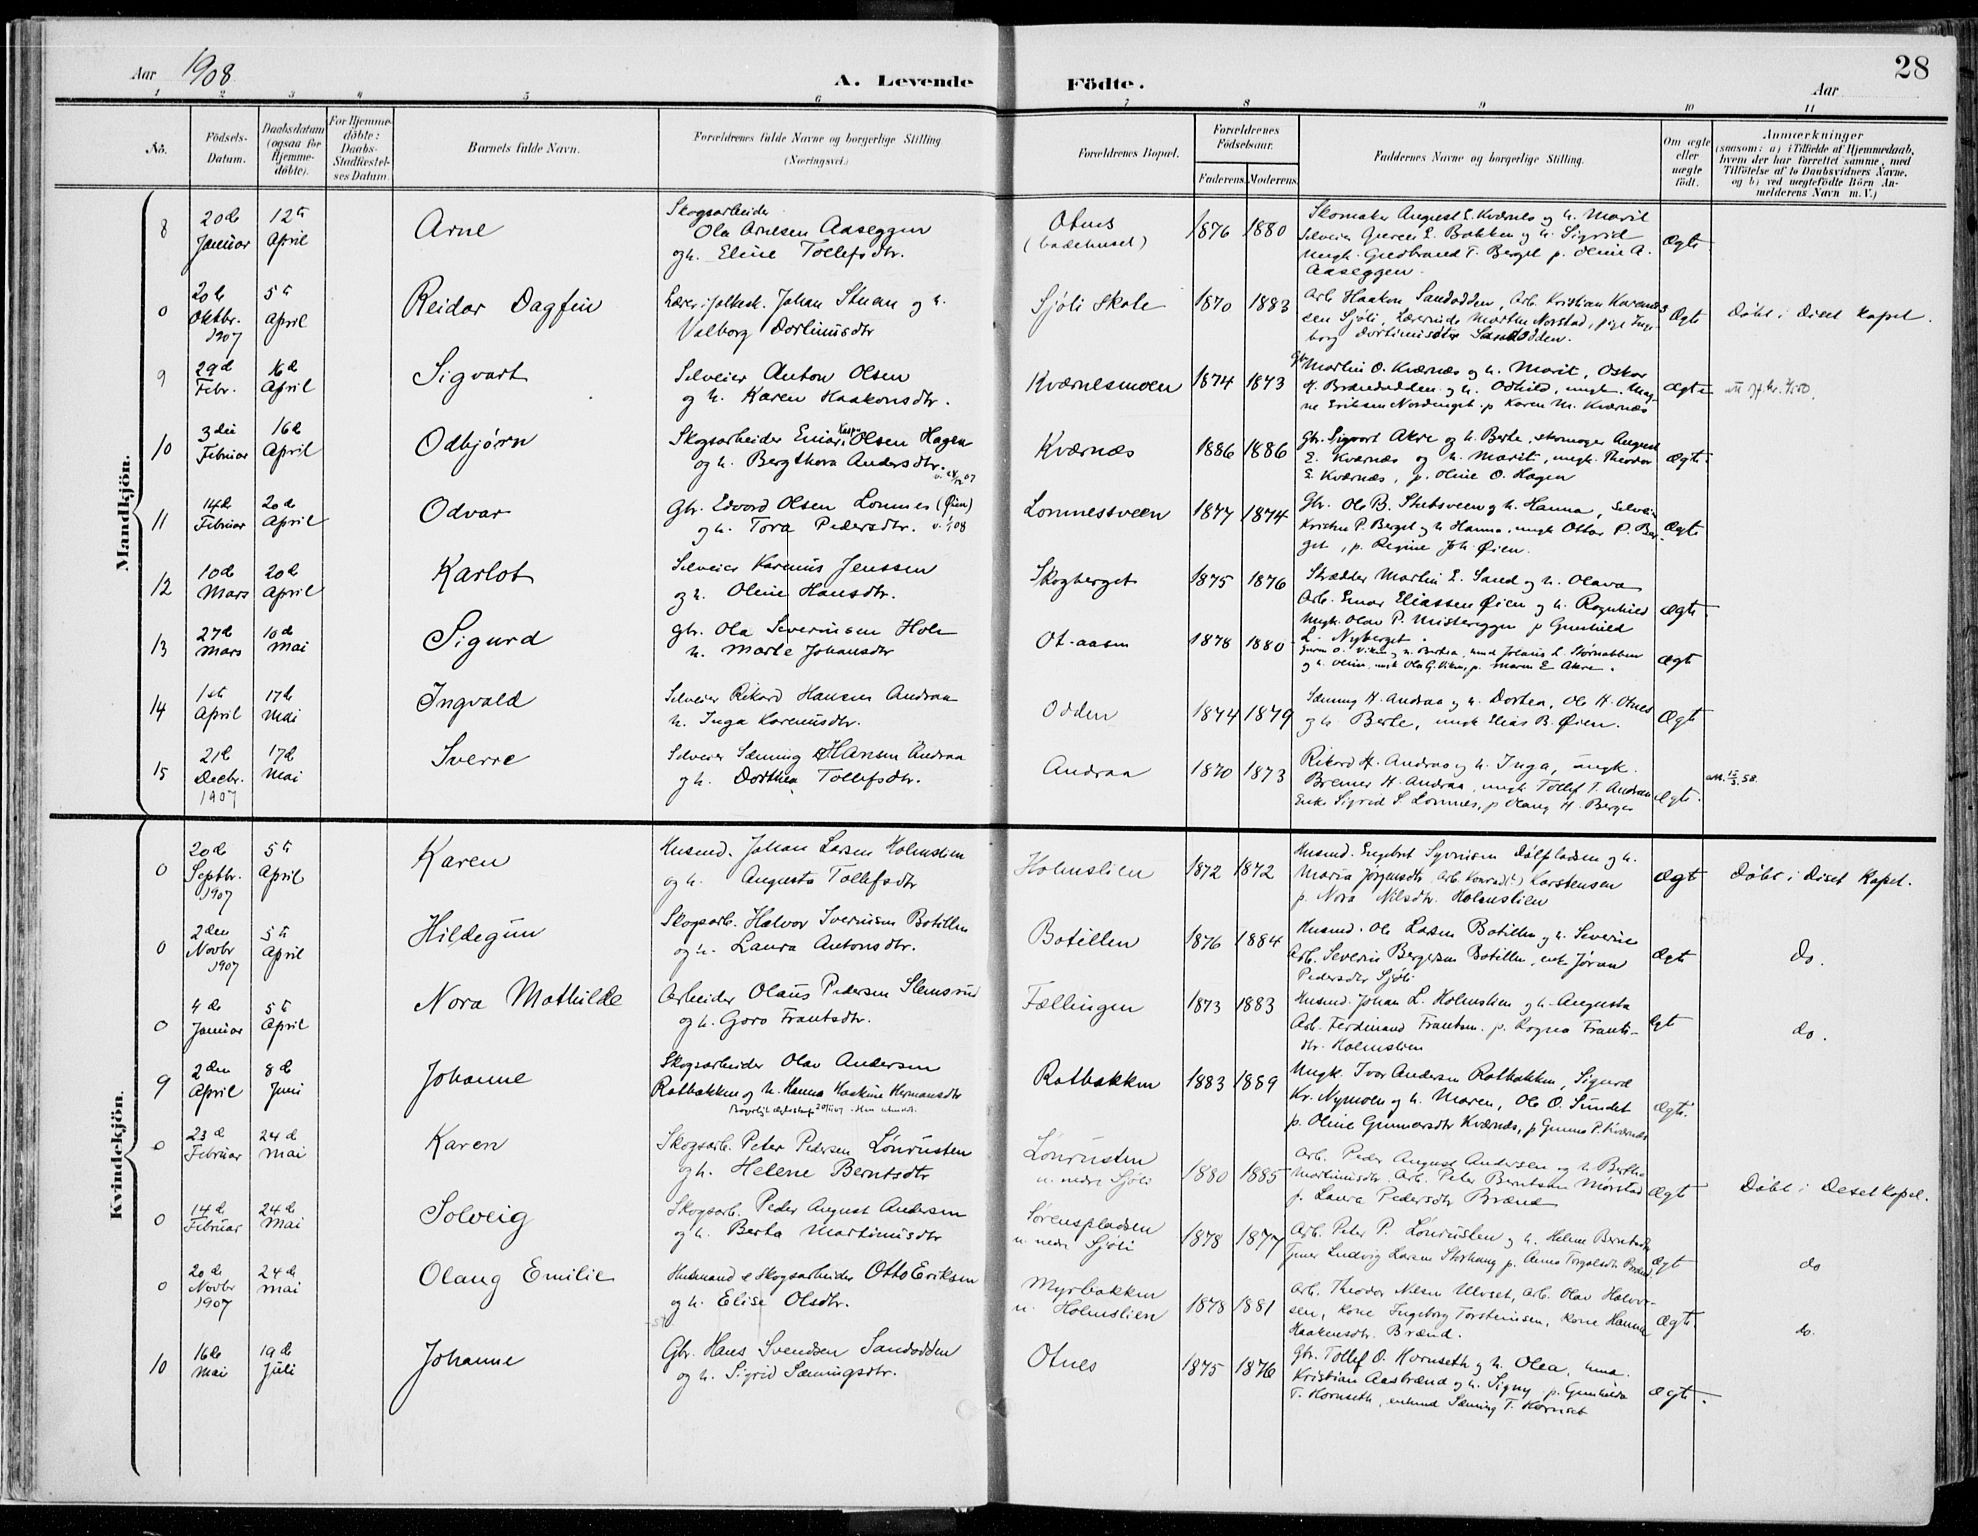 Aar 1908.
A. Levende Födte.
Aar
28
1 2 3 4 5 6 7 8 9 10 11
No.
Födsels-Datum.
Daabsdatum (ogsaa for Hjemmedöbte).
For Hjemmedöbte: Daabs-Stadfæstelses Datum.
Barnets fulde Navn.
Forældrenes fulde Navne og borgerlige Stilling (Næringsvei.)
Forældrenes Bopæl.
Forældrenes Födselsaar.
Faderens. Moderens.
Faddernes Navne og borgerlige Stilling.
Om ægte eller uægte födt.
Anmærkninger
(saasom: a) i Tilfælde af Hjemmedaab, hvem der har forrettet samme, med Tilföielse af to Daabsvidners Navne. og b) ved uægtefödte Börn Anmelderens Navn m. V.)
Mandkjön.
8 20de Januar 12te April Arne
Skogsarbeider
Ola Arnesen Aaseggen
og h. Eline Tollefsdtr.
Otnes
(badehuset)
1876 1880
Skomaker August E. Kværnes og h. Marit
Selveier E. Bakken og h. Sigrid
Ungk. Gudbrand T. Berget p. Oline A.
Aaseggen.
Ægte
0 20de Oktbr. 1907 5te April Reidar Dagfin
Lærer i folkesk. Johan Stuan og h.
Valborg Dortinusdtr
Sjöli Skole
1870 1883
Arb. Haakon Sandodden, Arb. Kristian Karenus
sen Sjöli, Lærerinde Marthe Norstad, pige Inge-
borg Dortinusdtr Sandodden.
Ægte
Döbt i Diset kapel.
9 29de Febr. 16de April Sigvart
Selveier Anton Olsen
og h. Karen Haakonsdtr.
Kværnesmoen
1874 1873
Gbr. Martin O. Kværnæs og h. Marit, Oskar
H. Brændodden og h. Odhild, ungk. Mag-
ne Eriksen Nordenget. p. Karen M. Kværnæs
Ægte
10 3die Februar 16de April Odbjørn
Skogsarbeider Einar Olsen Hagen
og h. Bergthora Andersdtr.
Kværnæs
1886 1886
Gbr. Sigvart Akre og h. Berte, skomager August
E. Kværnæs og h. Marit, ungk. Theodor
E. Kværnæs, p. Oline O. Hagen
Ægte
11 14de Februar 20de April Odvar
Gbr. Edvard Olsen Lomnes (Øien)
og h. Tora Pedersdtr.
Lomnessveen
1877 1874
Gbr. Ole B. Stubsveen og h. Hanna, Selveier
Kristen P. Berget og h. Hanna, ungk. Ottar P. Ber-
get, p. Regine Joh. Øien.
Ægte
12 10de Mars 20de April Karlot
Selveier Karenus Jenssen
og h. Oline Hansdtr.
Skogberget
1875 1876
Skrædder Martin E. Sand og h. Olava
Arb. Einar Eliassen Øien og h. Ragnhild
Ungk. Olav P. Misterеggen p. Gunhild
L. Nyberget.
Ægte
13 27de Mars 10de Mai Sigurd
gbr. Ola Severinsen Hole
h. Marte Johansdtr
Ot-aasen
1878 1880
Ægte
14 1ste April 17de Mai Ingvald
Selveier Rikard Hansen Andraa
h. Inga Karenusdtr.
Odden
1874 1879
Sæming H. Andraa og h. Dorthea, Ole H. Otnes
og h. Berte, ungk. Elias B. Øien.
Ægte
15 21de Decbr. 1907 17de Mai Sverre
Selveier Sæming Hansen Andraa
og h. Dorthea Tollefsdtr.
Andraa
1870 1873
Rikard H. Andraa og h. Inga, ungk.
Bremer H. Andraa, ungk. Tollef T. Andraa
Enke Sigrid S. Lomnes, p. Olaug H. Berger
Ægte.
Kvindekjön.
0 20de Septbr. 1907 5te April Karen
Husmd. Johan Larsen Holmslien
og h. Augusta Tollefsdtr
Holmslien
1872 1872
Husmd. Engebret Syversen Dölpladsen og h.
Maria Jörgensdtr, Arb. Konrad Karstensen
p. Nora Nilsdtr. Holmslien
Ægte
Döbt i Diset Kapel.
0 2den Novbr 1907 5te April Hildegun
Skogsarb. Halvor Iversen Botillen
og h. Laura Antonsdtr.
Botillen
1876 1884
Husmd. Ole Larsen Botillen og h. Severine
Arb. Severin Bergersen Botillen, enke Jöran
Pedersdtr Sjöli
Ægte
do.
0 4de Januar 5te April Nora Mathilde
Arbeider Olaus Pedersen Slemsrud
og h. Goro Frantsdtr.
Fællingen
1873 1883
Husmd. Johan L. Holmslien og h. Augusta
Arb. Ferdinand Frantsen. p. Ragna Frants-
dtr. Holmslien
Ægte
do.
9 2den April 8de Juni Johanne
Skogsarbeider Olav Andersen
Ratbakken og h. Hanna Haakine Hermansdtr
Ratbakken
1883 1889
Ungk. Ivar Andersen Ratbakken, Sigurd
Kr. Nymoen og h. Maren, Ole O. Sundet
p. Oline Gunnarsdtr Kværnæs, p. Gunna P. Kværnæs
Ægte.
0 23de Februar 24de Mai Karen
Skogsarb. Peter Pedersen Lönrusten
og h. Helene Berntsdtr
Lönrusten
u. nedre Sjöli
1880 1885
Arb. Peder August Andersen og h. Bertha
Martinusdtr. Arb. Peter Berntsen Mörstad
p. Laura Pedersdtr Brænd
Ægte
Döbt i Deset kapel.
0 14de Februar 24de Mai Solveig
Skogsarb. Peder August Andersen
og h. Berta Martinusdtr
Sörenspladsen
u. nedre Sjöli
1878 1877
Arb. Peter P. Lönrusten og h. Helene Berntsdtr
Tjener Ludvig Larsen Storhaug p. Anna
Ægte
do
0 20de Novbr 1907 24de Mai Olaug Emilie
Husmand & Skogsarbeider Otto Eriksen
og h. Elise Olsdtr.
Myrbakken
u. Holmslien
1878 1881
Arb. Theodor Nilsen Ulvset, Arb. Olav Halvor-
sen, kone Ingeborg Torsteinsen, kone Hanna
Haakensdtr. Brænd.
Ægte.
do.
10 16de Mai 19de Juli Johanne
Gbr. Hans Svendsen Sandodden
og h. Sigrid Sæmingsdtr.
Otnes
1875 1876
Gbr. Tollef O. Hornseth og h. Olea,
Kristian Aasbrænd og h. Signy p. Gunhilda
T. Hornseth, Sæming T. Hornset
Ægte.